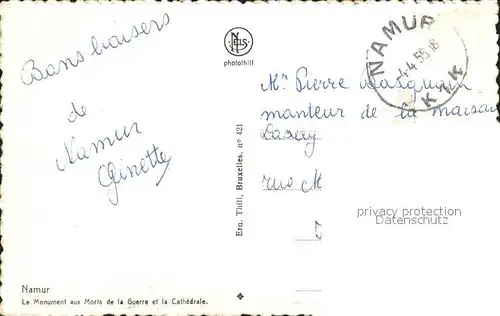 Bons baisers
de
Namur
Ginette
NELS
photothill
NAMUR
4-4 55 18
Mr Pierre
monteur de la maison
rue M
privacy protection
Datenschutz
Ern. Thill, Bruxelles, nº 421
Namur
Le Monument aux Morts de la Guerre et la Cathédrale.